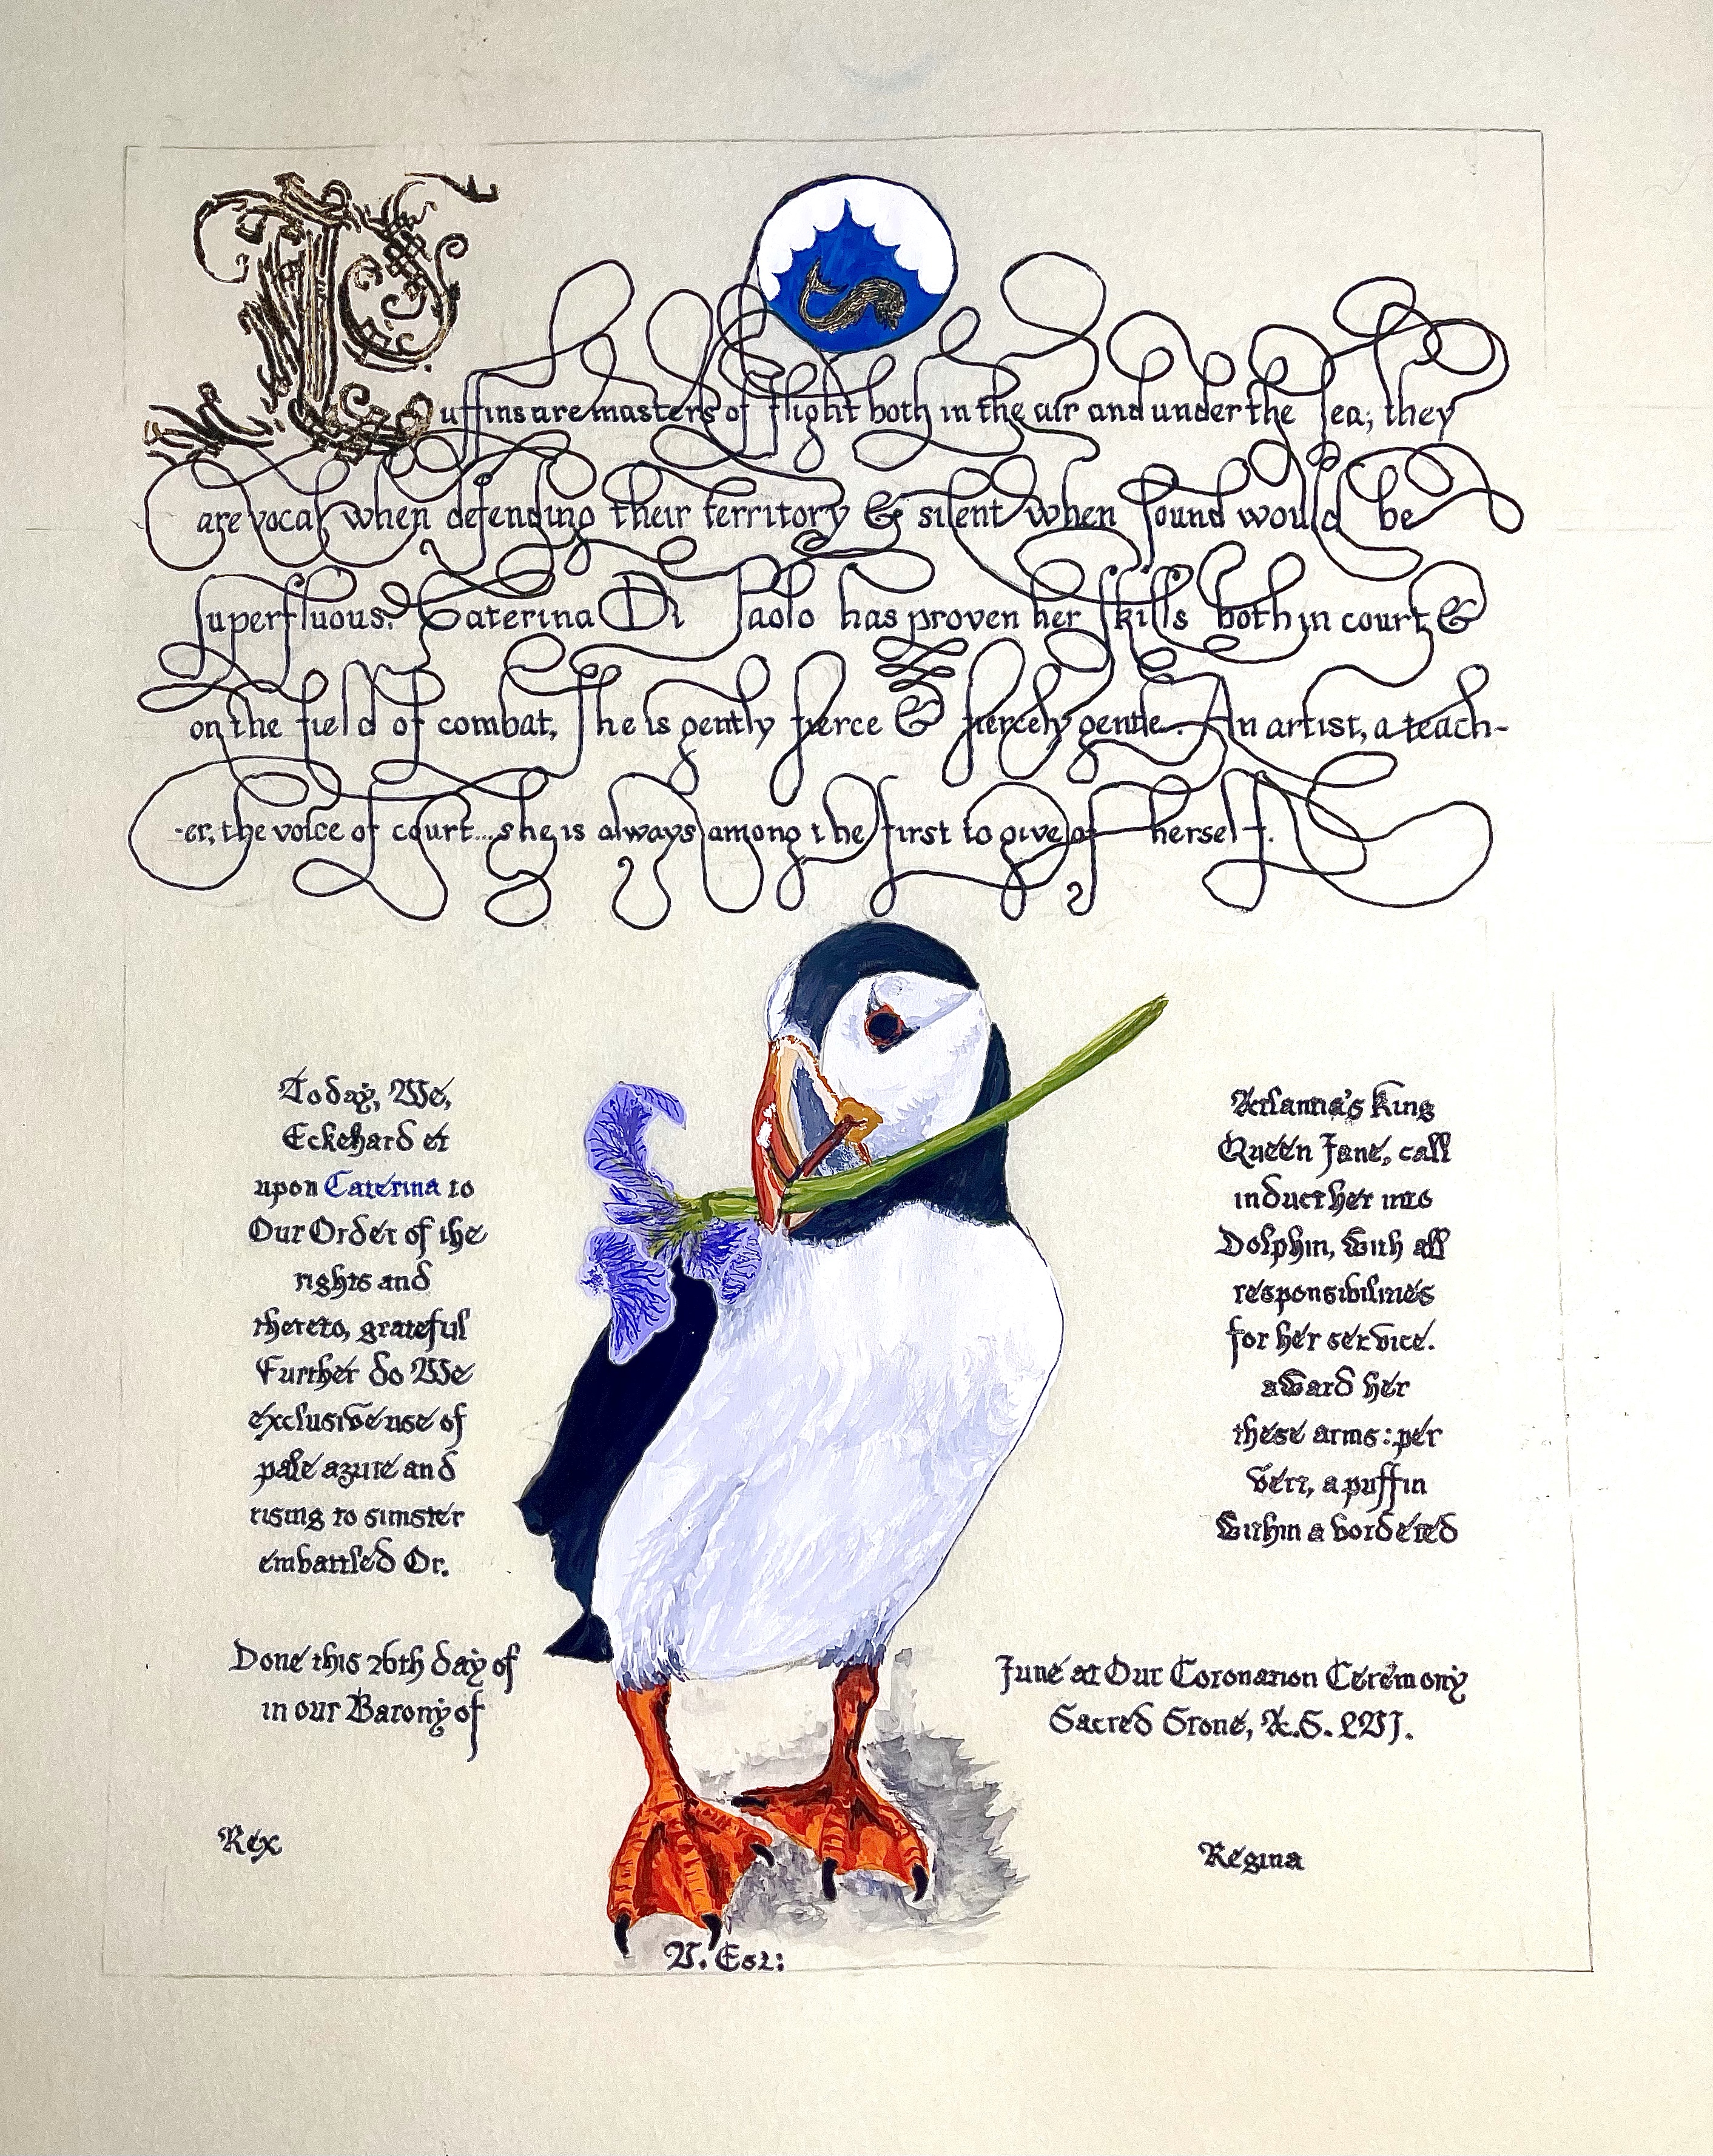 Puffins are masters of flight both in the air and under the sea; they
are vocal when defending their territory & silent when sound would be
superfluous. Caterina Di Paolo has proven her skills both in court &
on the field of combat, she is gently fierce & fiercely gentle. An artist, a teach-
-er, the voice of court...she is always among the first to give of herself.
Today, We, Atlantia's King
Eckehard et Queen Jane, call
upon Caterina to induct her into
Our Order of the Dolphin, with all
rights and responsibilities
thereto, grateful for her service.
Further do We award her
exclusive use of these arms: per
pale azure and vert, a puffin
rising to sinister within a bordered
embattled Or.
Done this 26th day of June at Our Coronation Ceremony
in our Barony of Sacred Stone, A.S. LVI.
Rex Regina
V.